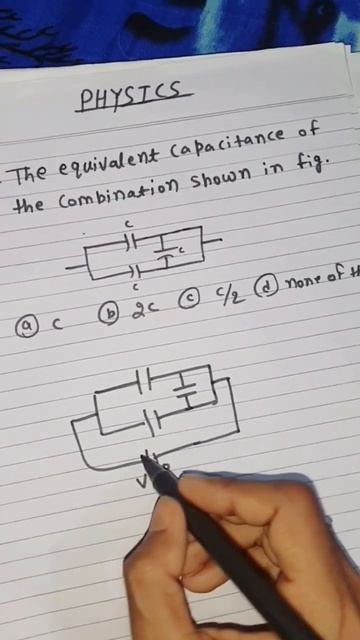 PHYSICS
The equivalent capacitance of
the combination shown in fig.
C
C
C
ⓐ C ⓑ 2C ⓒ C/2 ⓓ none of th
V